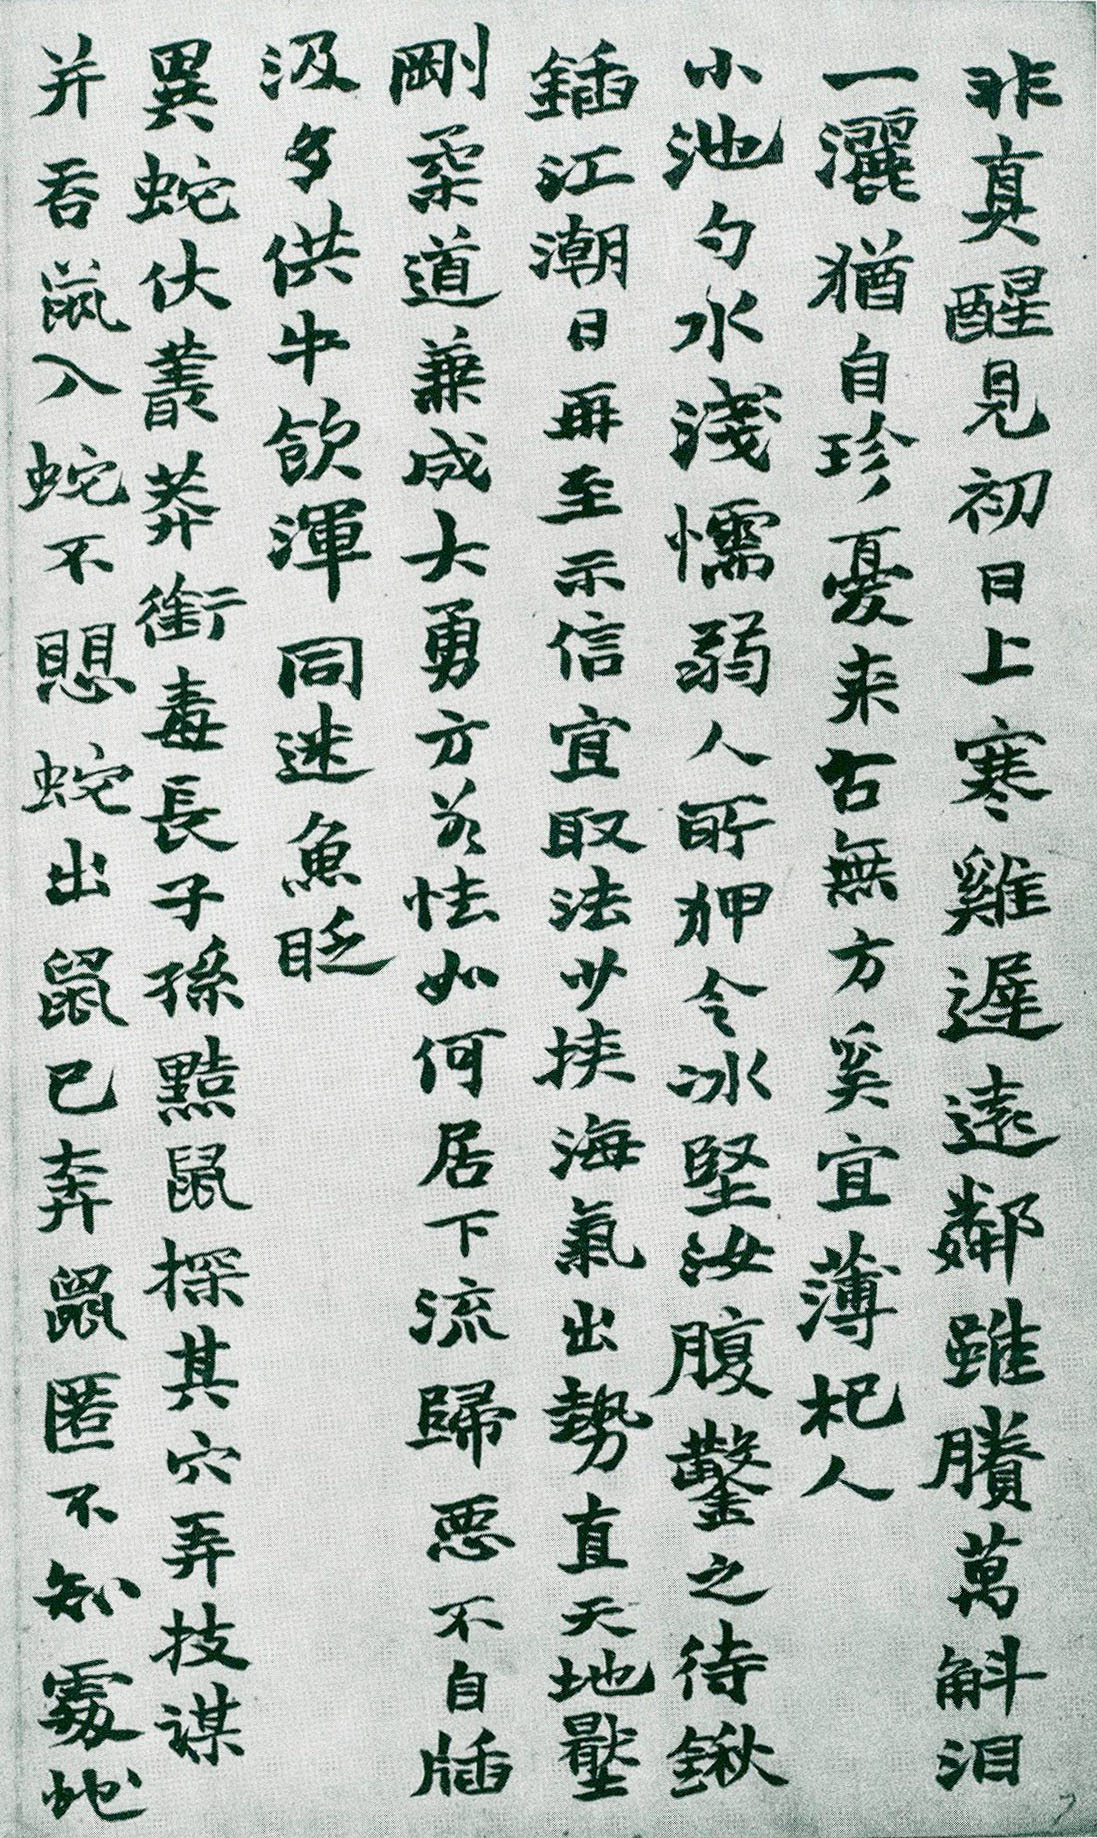 非真醒見初日上寒雞遲遠鄰雖賸萬斛淚
一灑猶自珍憂来古無方奚宜薄杞人
小池勺水淺懦弱人所狎令冰堅汝腹鑿之待鍬
鍤江潮日再至示信宜取法少挾海氣出勢直天地壓
剛柔道兼成大勇方若怯如何居下流歸惡不自牐
汲多供牛飲渾同迷魚眨
異蛇伏叢莽銜毒長子孫黠鼠探其穴弄技謀
并吞鼠入蛇不思蛇出鼠已奔鼠匿不知處蛇